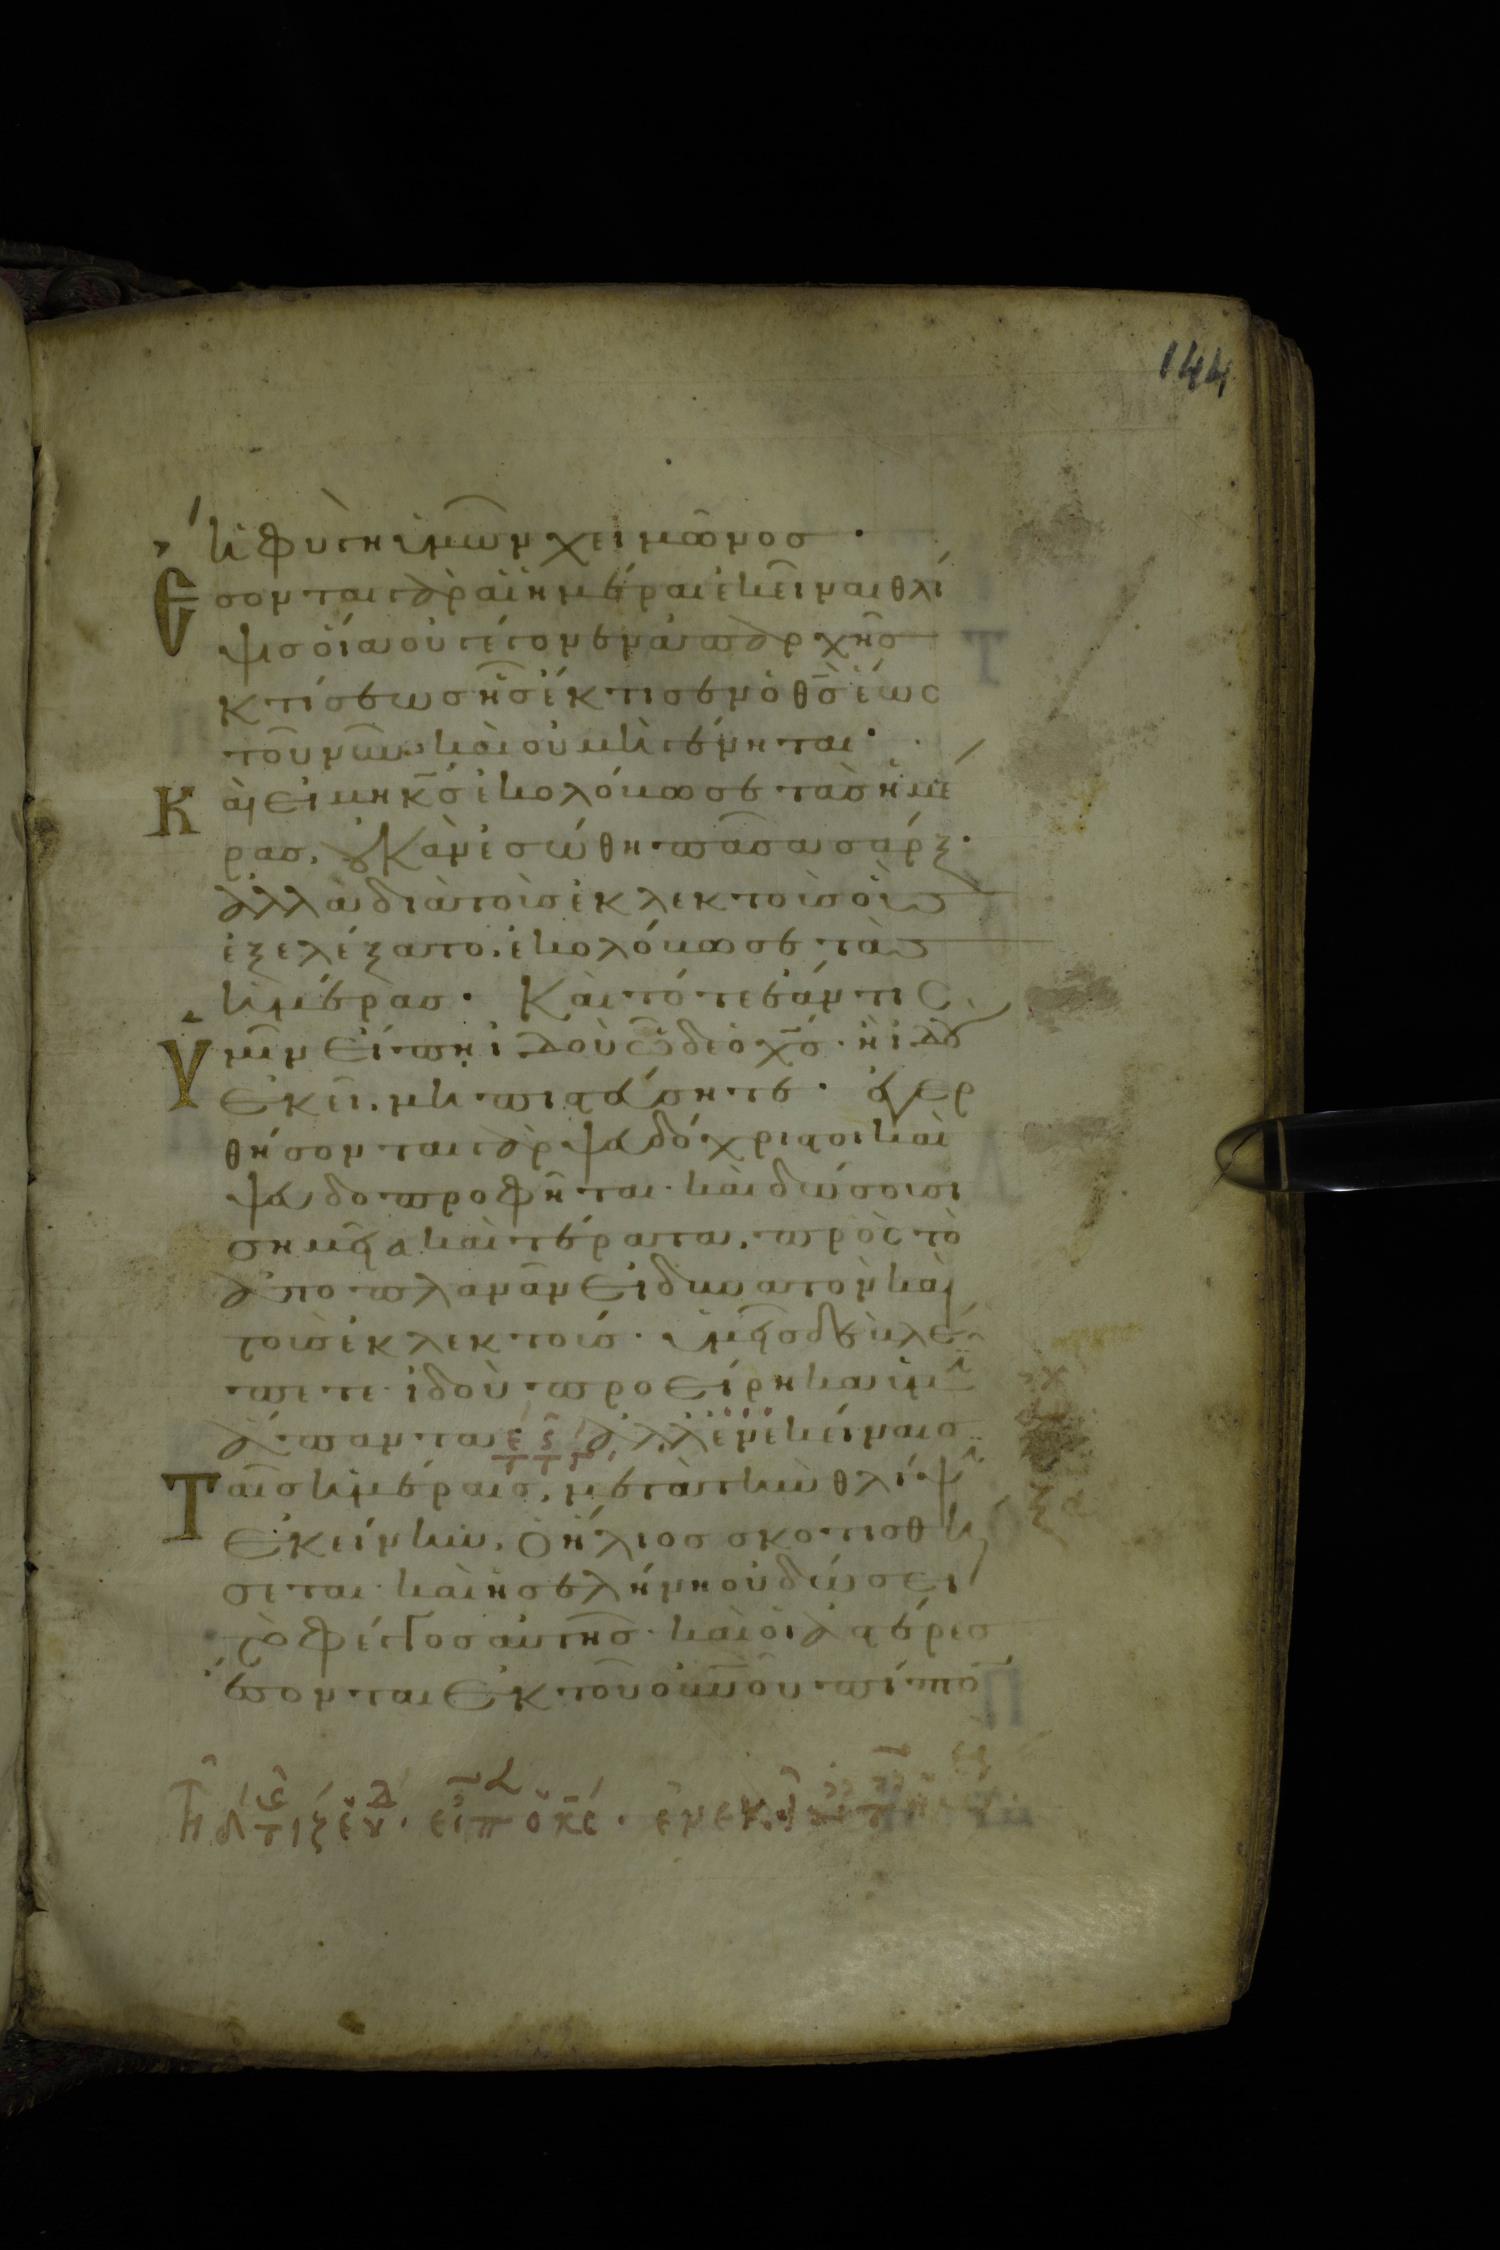 144
ἡ φυγὴ ὑμῶν χειμῶνος·
Ἔσονται γὰρ αἱ ἡμέραι ἐκεῖναι θλί
ψις οἵα οὐ γέγονεν ἀπ' ἀρχῆς
κτίσεως ἧς ἔκτισεν ὁ θ̅ς̅ ἕως
τοῦ νῦν· καὶ οὐ μὴ γένηται·
Καὶ εἰ μὴ κ̅ς̅ ἐκολόβωσε τὰς ἡμέ
ρας, οὐκ ἂν ἐσώθη πᾶσα σάρξ·
ἀλλὰ διὰ τοὺς ἐκλεκτοὺς οὓς
ἐξελέξατο, ἐκολόβωσε τὰς
ἡμέρας· Καὶ τότε ἐάν τις
Ὑμῖν εἴπῃ ἰδοὺ ὧδε ὁ χ̅ς̅· ἢ ἰδοὺ
ἐκεῖ, μὴ πιστεύσητε· ἐγερ
θήσονται γὰρ ψευδόχριστοι καὶ
ψευδοπροφῆται· καὶ δώσουσι
σημεῖα καὶ τέρατα, πρὸς τὸ
ἀποπλανᾶν εἰ δυνατὸν καὶ
τοὺς ἐκλεκτούς· ὑμεῖς δὲ βλέ
πετε· ἰδοὺ προείρηκα ὑμῖν
ἅπαντα ἀλλ' ἐν ἐκείναις
Ταῖς ἡμέραις, μετὰ τὴν θλίψιν
ἐκείνην, ὁ ἥλιος σκοτισθή
σεται· καὶ ἡ σελήνη οὐ δώσει
τὸ φέγγος αὐτῆς· καὶ οἱ ἀστέρες
ἔσονται ἐκ τοῦ οὐ̅νοῦ πίπτο